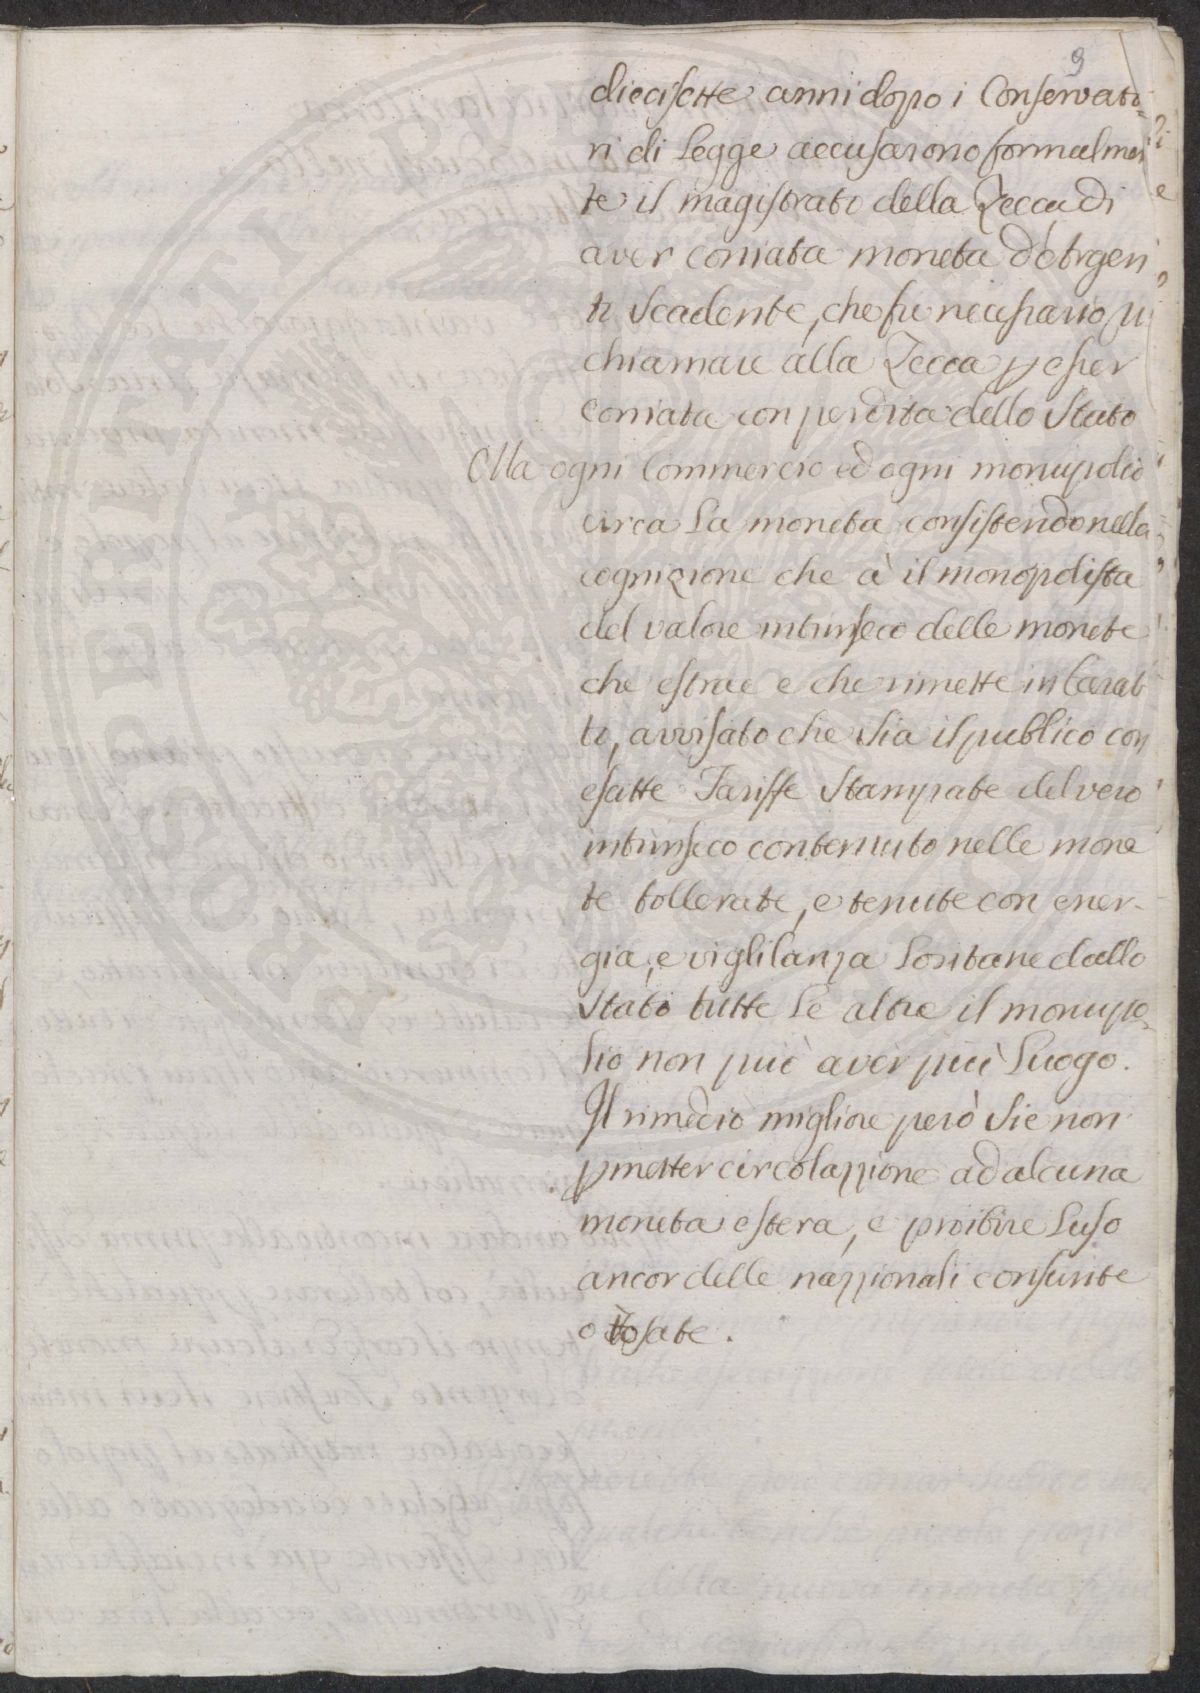 9
diecisette anni dopo i Conservato=
ri di Legge accusarono formalmen
te il magistrato della Zecca di
aver coniata moneta d'Argen
to Scadente, che fu necessario ri
chiamare alla Zecca p esser
coniata con perdita dello Stato
Ma ogni Commercio ed ogni monopolio
circa la moneta consistendo nella
cognizione che à il monopolista
del valore intrinseco delle monete
che estrae e che rimette in Carat
ti, avvisato che sia il publico con
esatte Tariffe Stampate del vero
intrinseco contenuto nelle mone
te tollerate, e tenute con ener-
gia, e viglilanza Lontane dallo
Stato tutte le altre il monopo=
lio non può aver più Luogo.
Il rimedio migliore però sie non
pmetter circolazzione ad alcuna
moneta estera, e proibire Luso
ancor delle nazzionali consunte
o tosate.